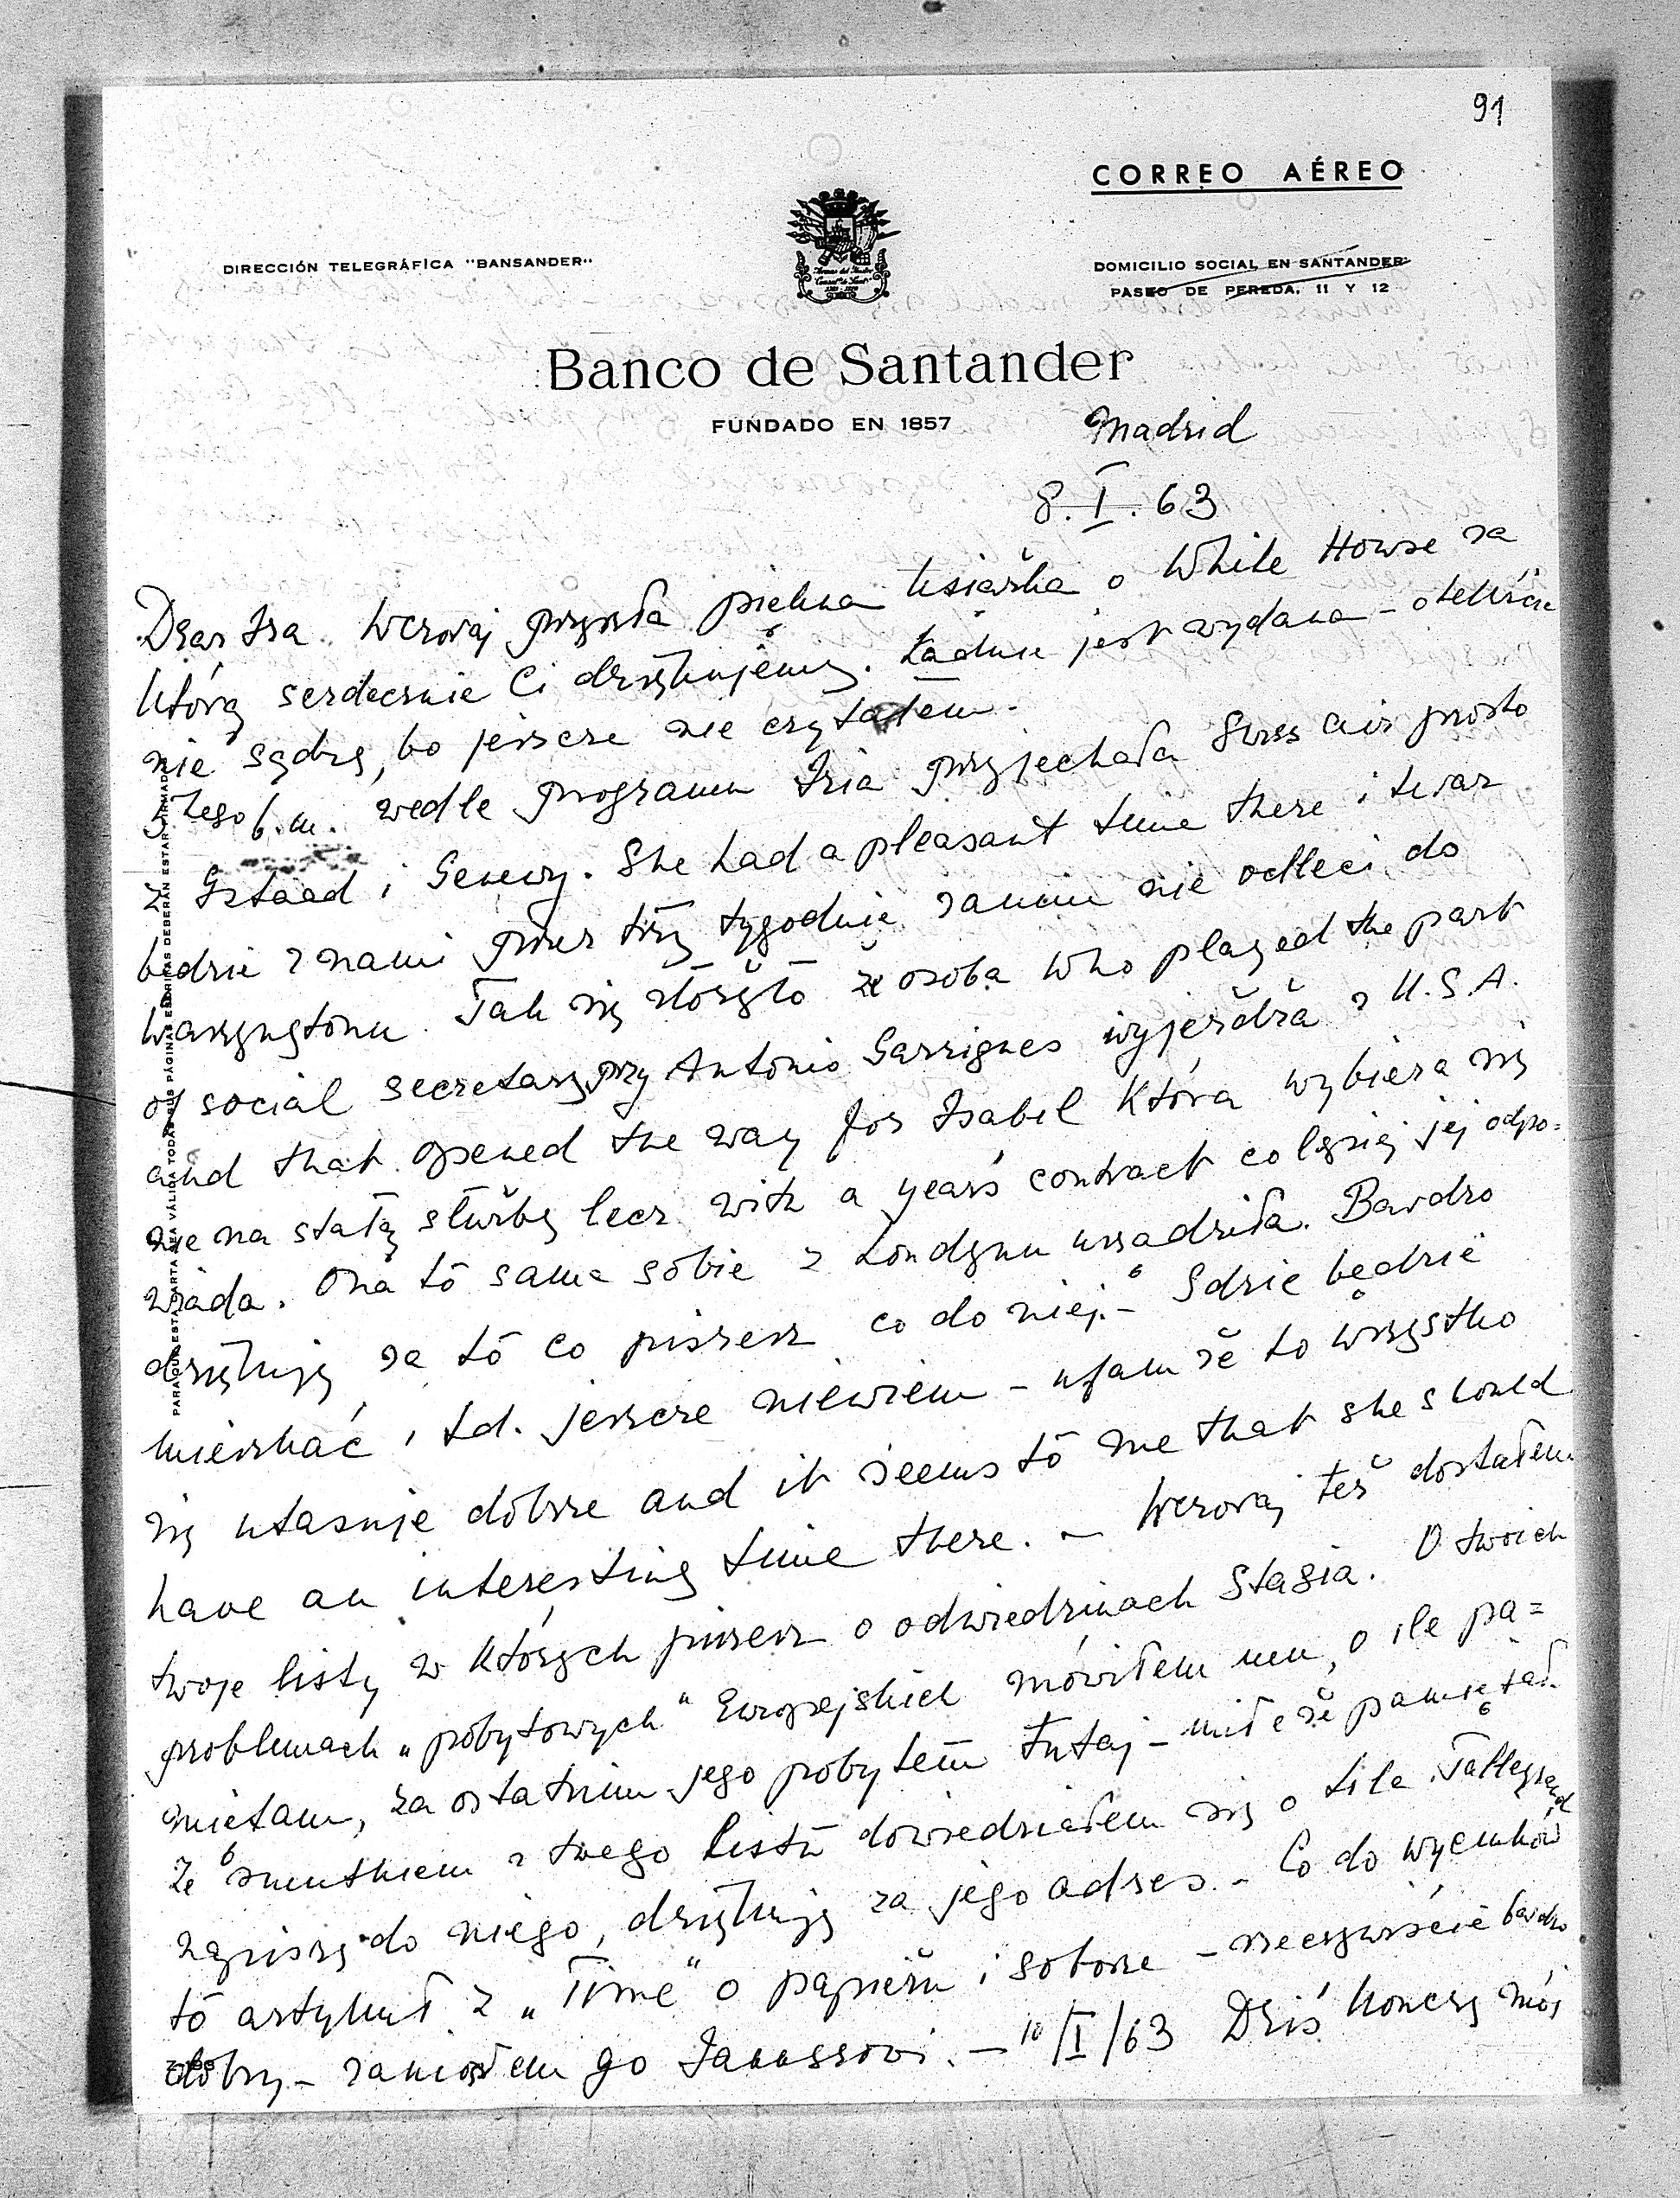 91
CORREO AÉREO
DIRECCIÓN TELEGRÁFICA "BANSANDER"
DOMICILIO SOCIAL EN SANTANDER
PASEO DE PEREDA, 11 Y 12
Banco de Santander
FUNDADO EN 1857
Madrid
8.I.63
Dear Isa. Wczoraj przyszła piękna książka o White House za
którą serdecznie Ci dziękujemy. Ładnie jest wydana - o tekście
nie sądzę, bo jeszcze nie czytałem.
5tego b.m. wedle programu Isia przyjechała Swiss air prosto
z Gstaad i Genewy. She had a pleasant time there i teraz
będzie z nami przez trzy tygodnie zanim nie odleci do
Waszyngtonu. Tak się złożyło że osoba who played the part
of social secretary przy Antonio Garrigues wyjeżdża z U.S.A.
and that opened the way for Isabel która wybiera się
nie na stałą służbę lecz with a year's contract co lepiej jej odpo=
wiada. Ona to sama sobie z Londynu urządziła. Bardzo
dziękuję za to co piszesz co do niej. - Gdzie będzie
mieszkać i td. jeszcze niewiem - ufam że to wszystko
się ułasuje dobrze and it seems to me that she should
have an interesting time there. - Wczoraj też dostałem
twoje listy w których piszesz o odwiedzinach Stasia. O twoich
problemach „pobytowych" Europejskich mówiłem mu, o ile pa=
miętam, za ostatnim jego pobytem tutaj - miłe że pamiętał.
Ze smutkiem z twego listu dowiedziałem się o Lila Talleyrand
zapiszę do niego, dziękuję za jego adres. - Co do wycinków
to artykuł z „Time" o papieżu i soborze - rzeczywiście bardzo
dobry - zaniosłem go Januszowi. - 10/I/63 Dziś kończę mój
PARA QUE ESTA CARTA SEA VÁLIDA TODAS SUS PÁGINAS ESCRITAS DEBERÁN ESTAR FIRMADAS